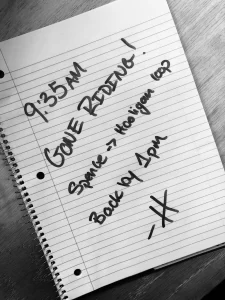 9:35 AM
GONE RIDING!
Spence → Hooligan loop
Back by 1pm
-H